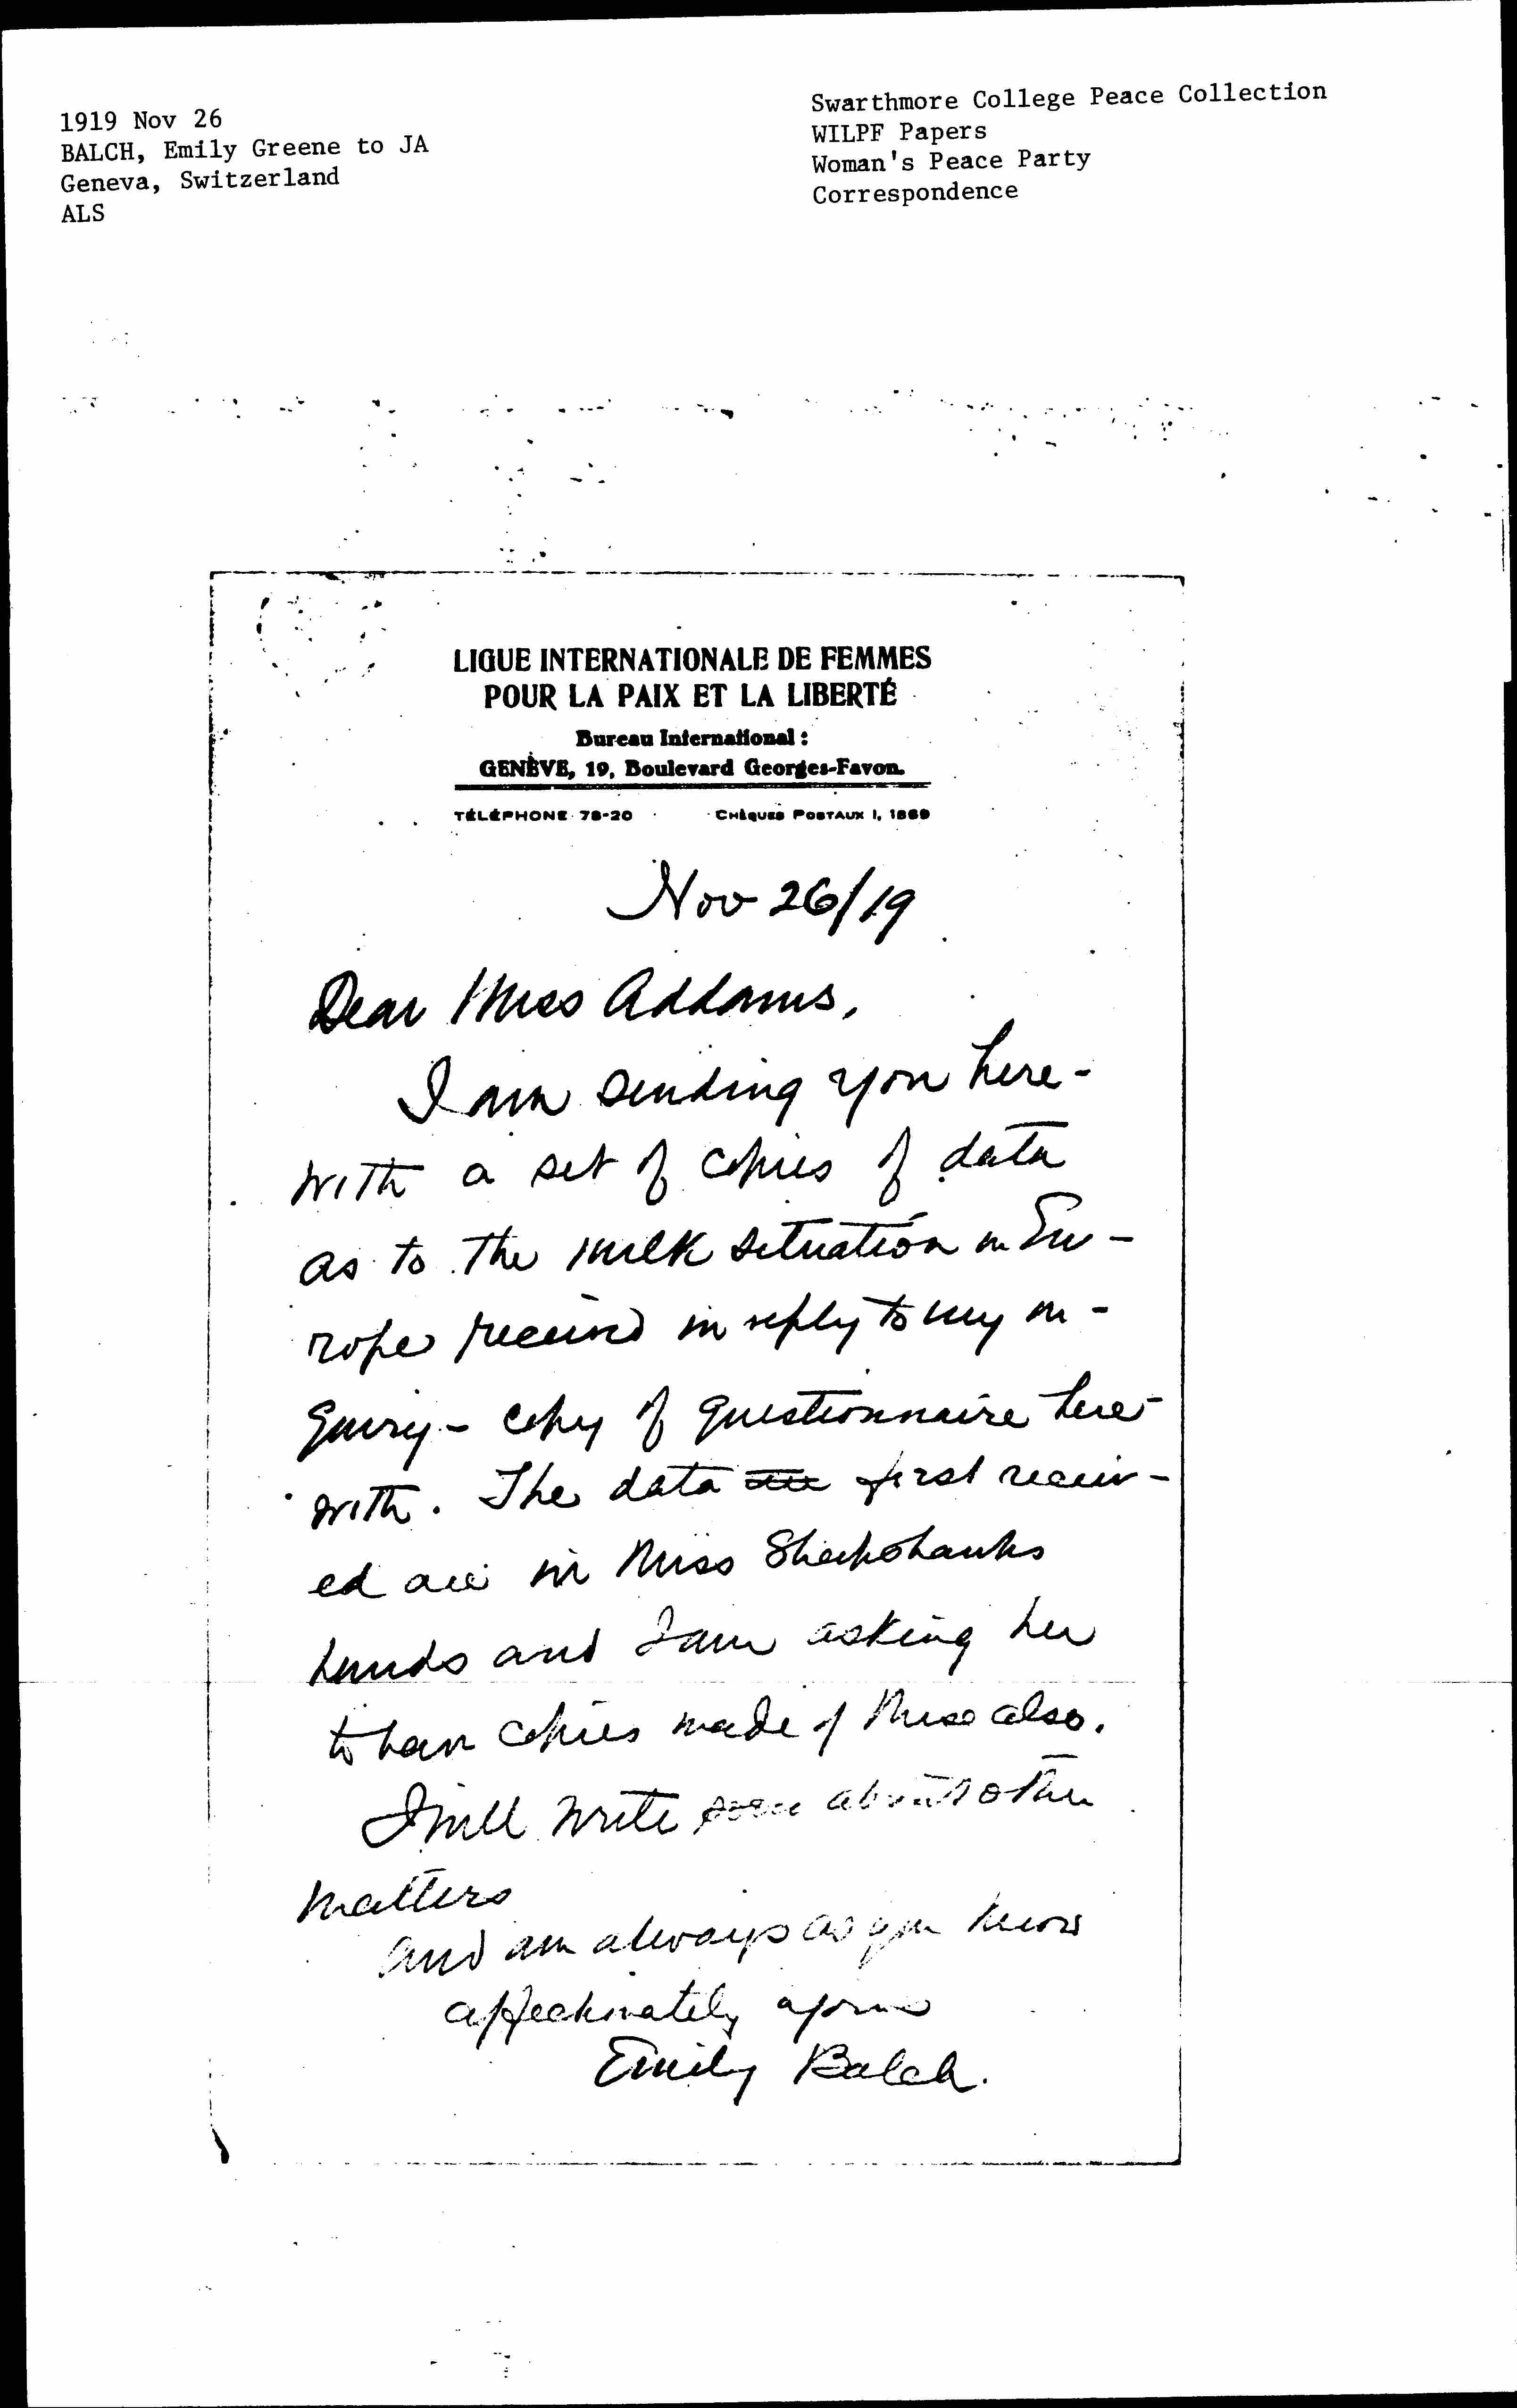 1919 Nov 26
BALCH, Emily Greene to JA
Geneva, Switzerland
ALS
Swarthmore College Peace Collection
WILPF Papers
Woman's Peace Party
Correspondence
LIGUE INTERNATIONALE DE FEMMES
POUR LA PAIX ET LA LIBERTÉ
Bureau International :
GENÈVE, 19, Boulevard Georges-Favon.
TÉLÉPHONE 78-20 CHÈQUES POSTAUX I, 1869
Nov 26/19
Dear Miss Addams,
I am sending you here-
with a set of copies of data
as to the milk situation in Eu-
rope received in reply to my in-
quiry - copy of questionnaire here-
with. The data first receiv-
ed are in Miss Sheepshanks
hands and I am asking her
to have copies made of these also.
I will write soon about other
matters
and am always as you know
affectionately yours
Emily Balch.